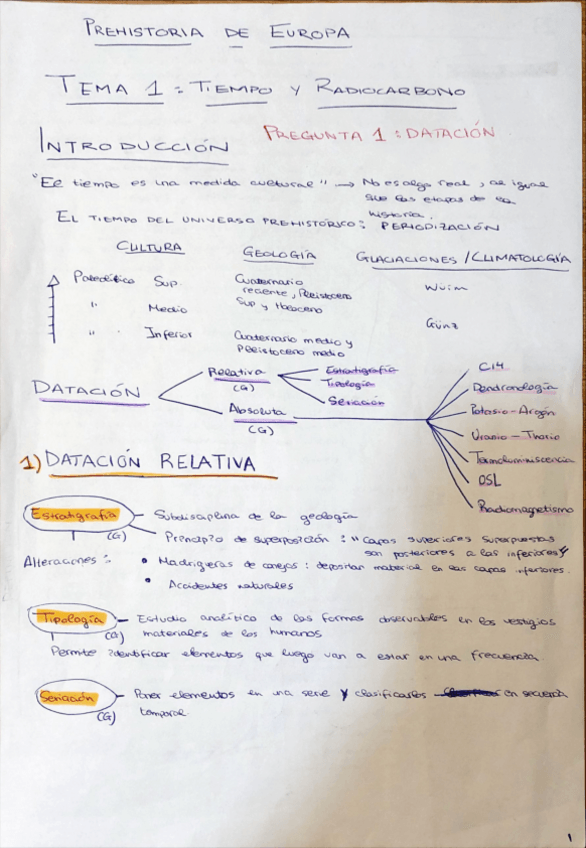 PREHISTORIA DE EUROPA
TEMA 1: TIEMPO Y RADIOCARBONO
INTRODUCCIÓN
PREGUNTA 1: DATACIÓN
"El tiempo es una medida cultural" → No es algo real, al igual
que las etapas de la
historia.
EL TIEMPO DEL UNIVERSO PREHISTÓRICO: PERIODIZACIÓN
CULTURA GEOLOGÍA GLACIACIONES/CLIMATOLOGÍA
Paleolítico Sup. Cuaternario
reciente, Pleistoceno
Sup y Holoceno Würm
" Medio
Günz
" Inferior Cuaternario medio y
Pleistoceno medio
DATACIÓN
Relativa
(G)
Estratigrafía
Tipología
Seriación
Absoluta
(G)
C14
Dendronología
Potasio-Argón
Uranio-Thorio
Termoluminiscencia
OSL
Radiomagnetismo
1) DATACIÓN RELATIVA
Estratigrafía (G) - Subdisciplina de la geología
- Principio de superposición: "Capas superiores superpuestas
son posteriores a las inferiores"
Alteraciones: • Madrigueras de conejos: depositar material en las capas inferiores.
• Accidentes naturales
Tipología (G) - Estudio analítico de las formas observables en los vestigios
materiales de los humanos
Permite identificar elementos que luego van a estar en una frecuencia
Seriación (G) - Poner elementos en una serie y clasificarlos en secuencia
temporal
1